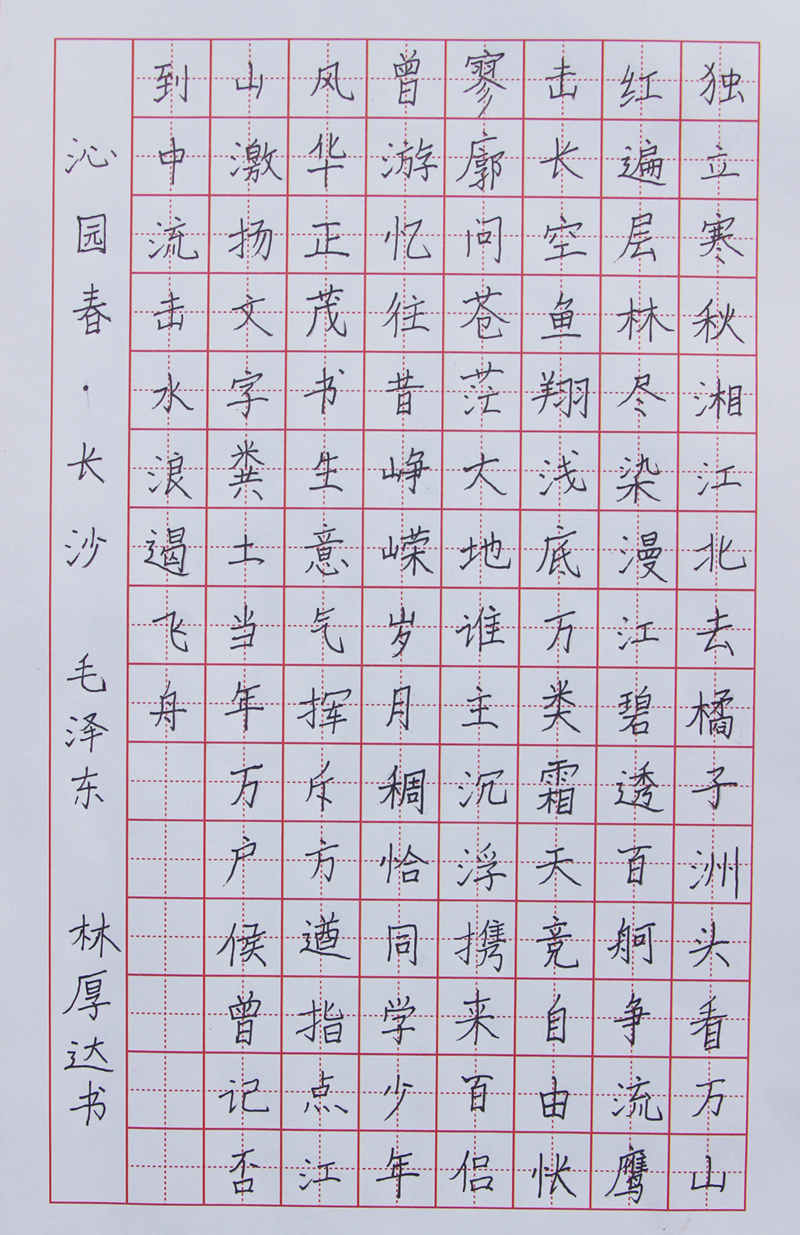 独立寒秋湘江北去橘子洲头看万山
红遍层林尽染漫江碧透百舸争流鹰
击长空鱼翔浅底万类霜天竞自由怅
寥廓问苍茫大地谁主沉浮携来百侣
曾游忆往昔峥嵘岁月稠恰同学少年
风华正茂书生意气挥斥方遒指点江
山激扬文字粪土当年万户侯曾记否
到中流击水浪遏飞舟
沁园春·长沙 毛泽东 林厚达书